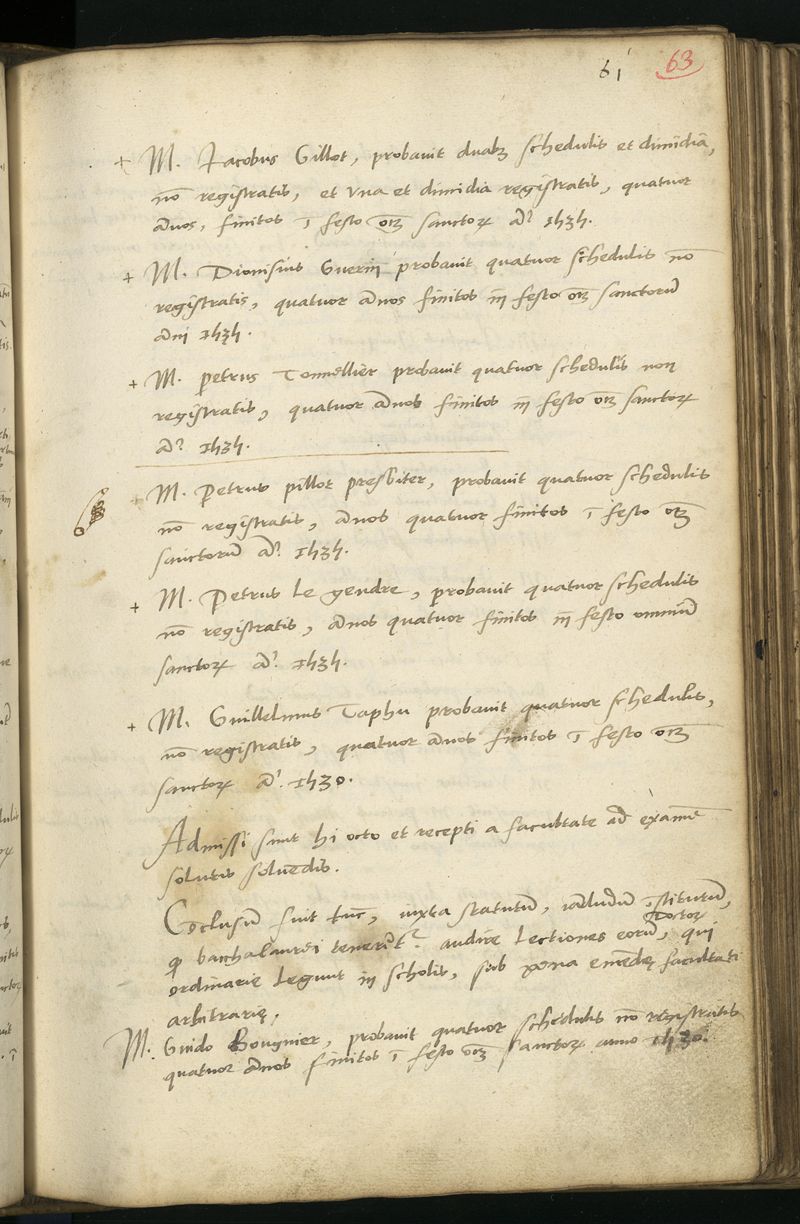 61 63
+ M. Jacobus Gillot, probauit duabꝫ schedulis et dimidia,
nō registratis, et vna et dimidia registratis, quatuor
ānos, finitos ī festo oīm sanctorꝝ āº 1534.
+ M. Dionisius Guerin probauit quatuor schedulis nō
registratis, quatuor ānos finitos in festo oīm sanctorū
āni 1534.
+ M. petrus Tonnellier probauit quatuor schedulis non
registratis, quatuor ānos finitos in festo oīm sanctorꝝ
āº 1534.
+ M. Petrus pillot presbiter, probauit quatuor schedulis
nō registratis, ānos quatuor finitos ī festo oīm
sanctorū āº. 1534.
+ M. Petrus le gendre, probauit quatuor schedulis
nō registratis, ānos quatuor finitos in festo omniū
sanctorꝝ āº. 1534.
+ M. Guillelmus Taphu probauit quatuor schedulis,
nō registratis, quatuor ānos finitos ī festo oīm
sanctorꝝ āº. 1530.
Admissi sunt hi octo et recepti a facultate ad examē
solutis soluēdis.
Cōclusū fuit tūc, iuxta statutū, iādudum īstitutū,
ꝙ bacchalaurei tenerētʳ audire lectiones eorū doctorꝝ, qui
ordinarie legunt in scholis, sub pœna emēdę facultati
arbitrarię.
M. Guido Bougnier, probauit quatuor schedulis nō registratis
quatuor ānos finitos ī festo oīm sanctorꝝ anno 1530.